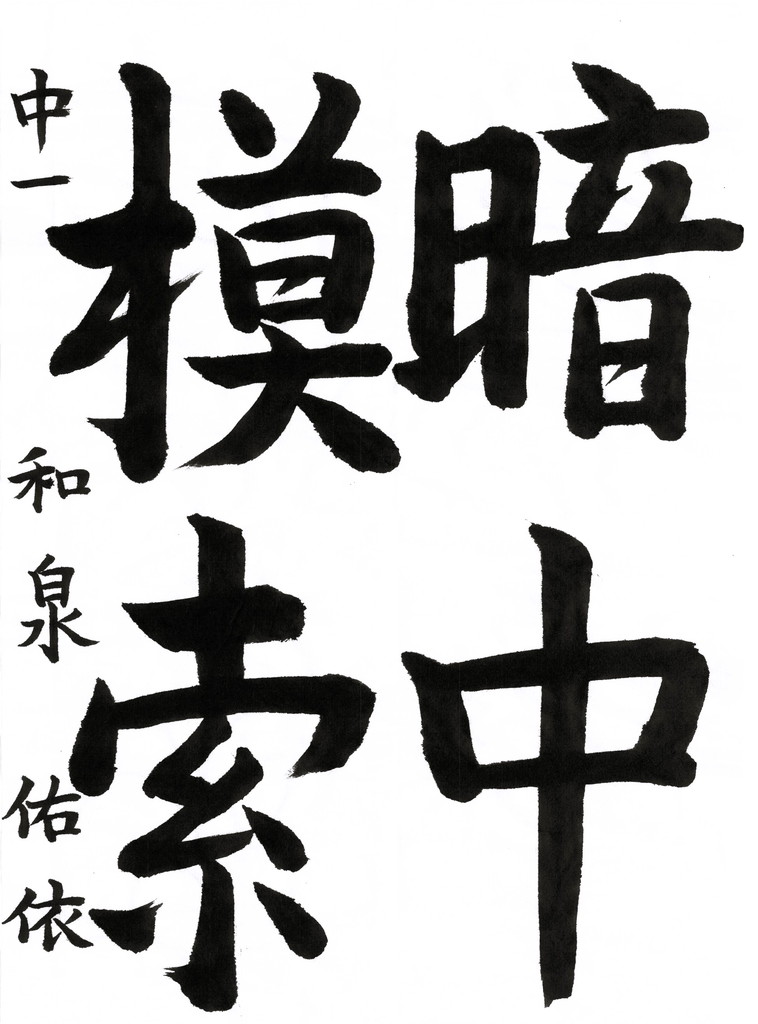 暗中
模索
中一 和泉 佑依